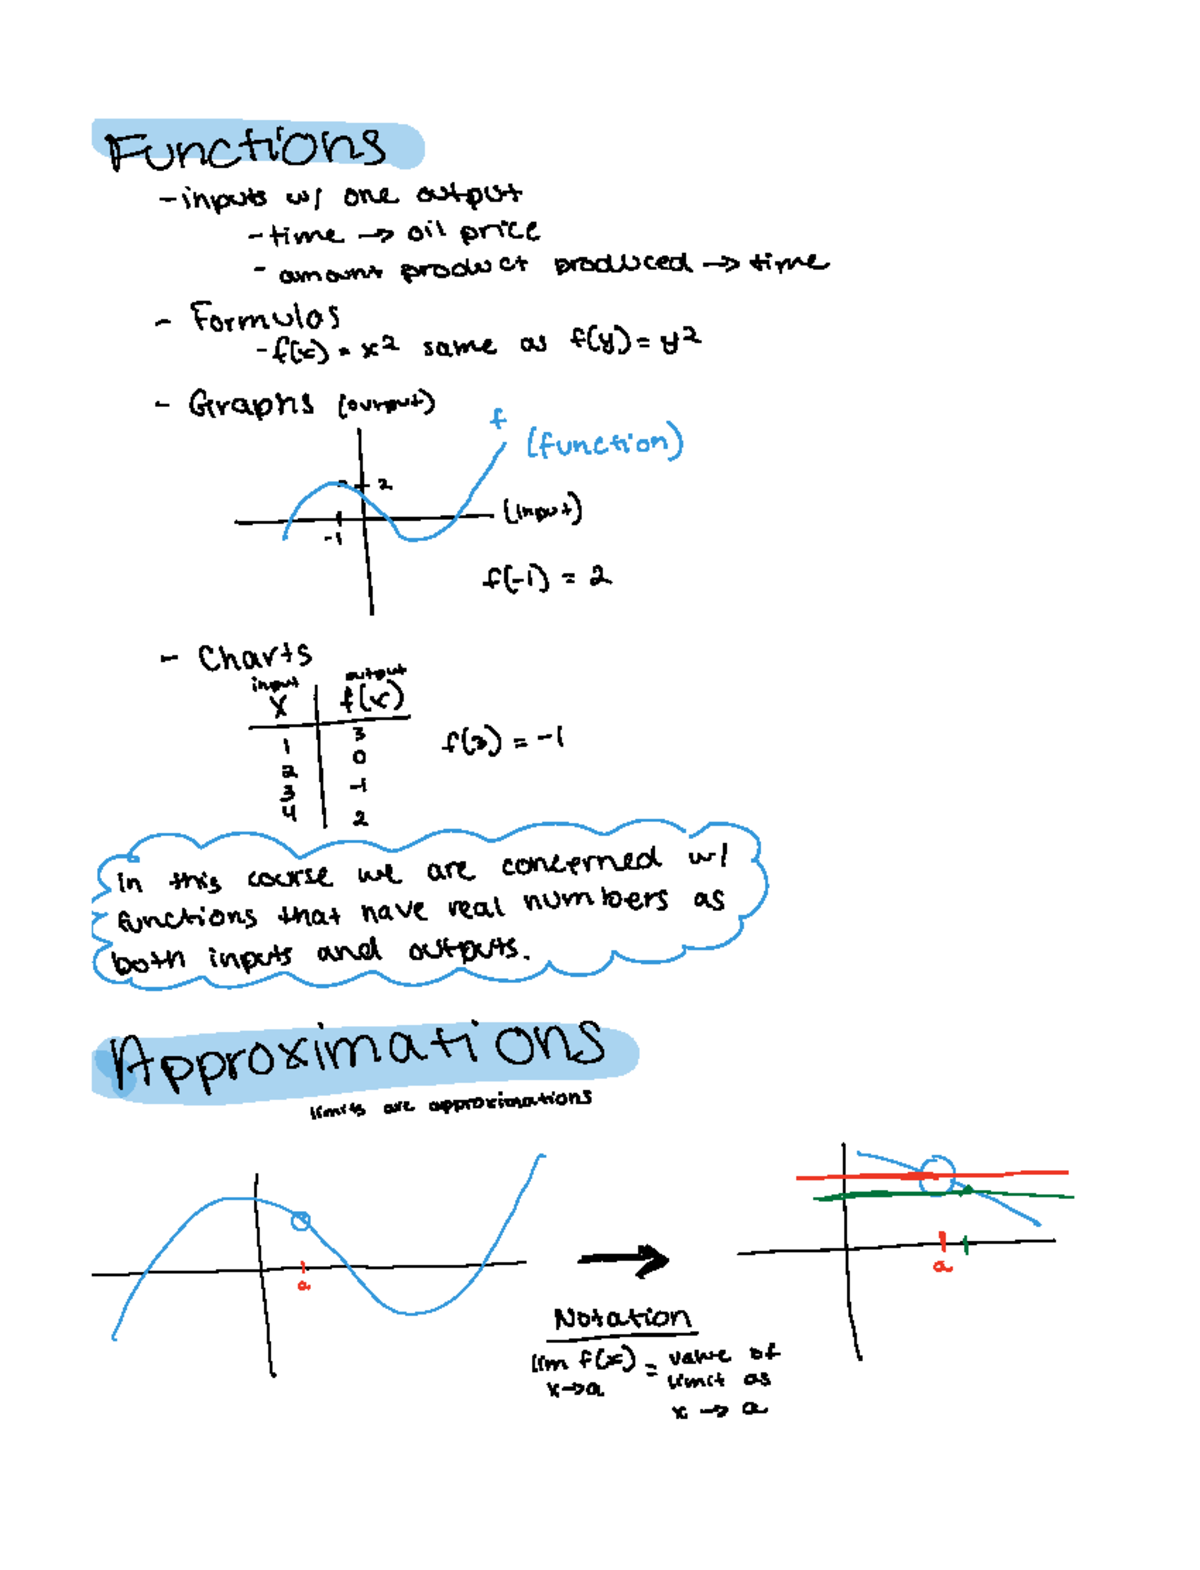 Functions
- inputs w/ one output
- time → oil price
- amount product produced → time
- Formulas
- f(x) = x² same as f(y) = y²
- Graphs (output)
f
(function)
2
(input)
-1
f(-1) = 2
- Charts
input output
x f(x)
1 3
2 0
3 -1
4 2
f(3) = -1
in this course we are concerned w/
functions that have real numbers as
both inputs and outputs.
Approximations
limits are approximations
a
a
Notation
lim f(x) = value of
x→a limit as
x → a